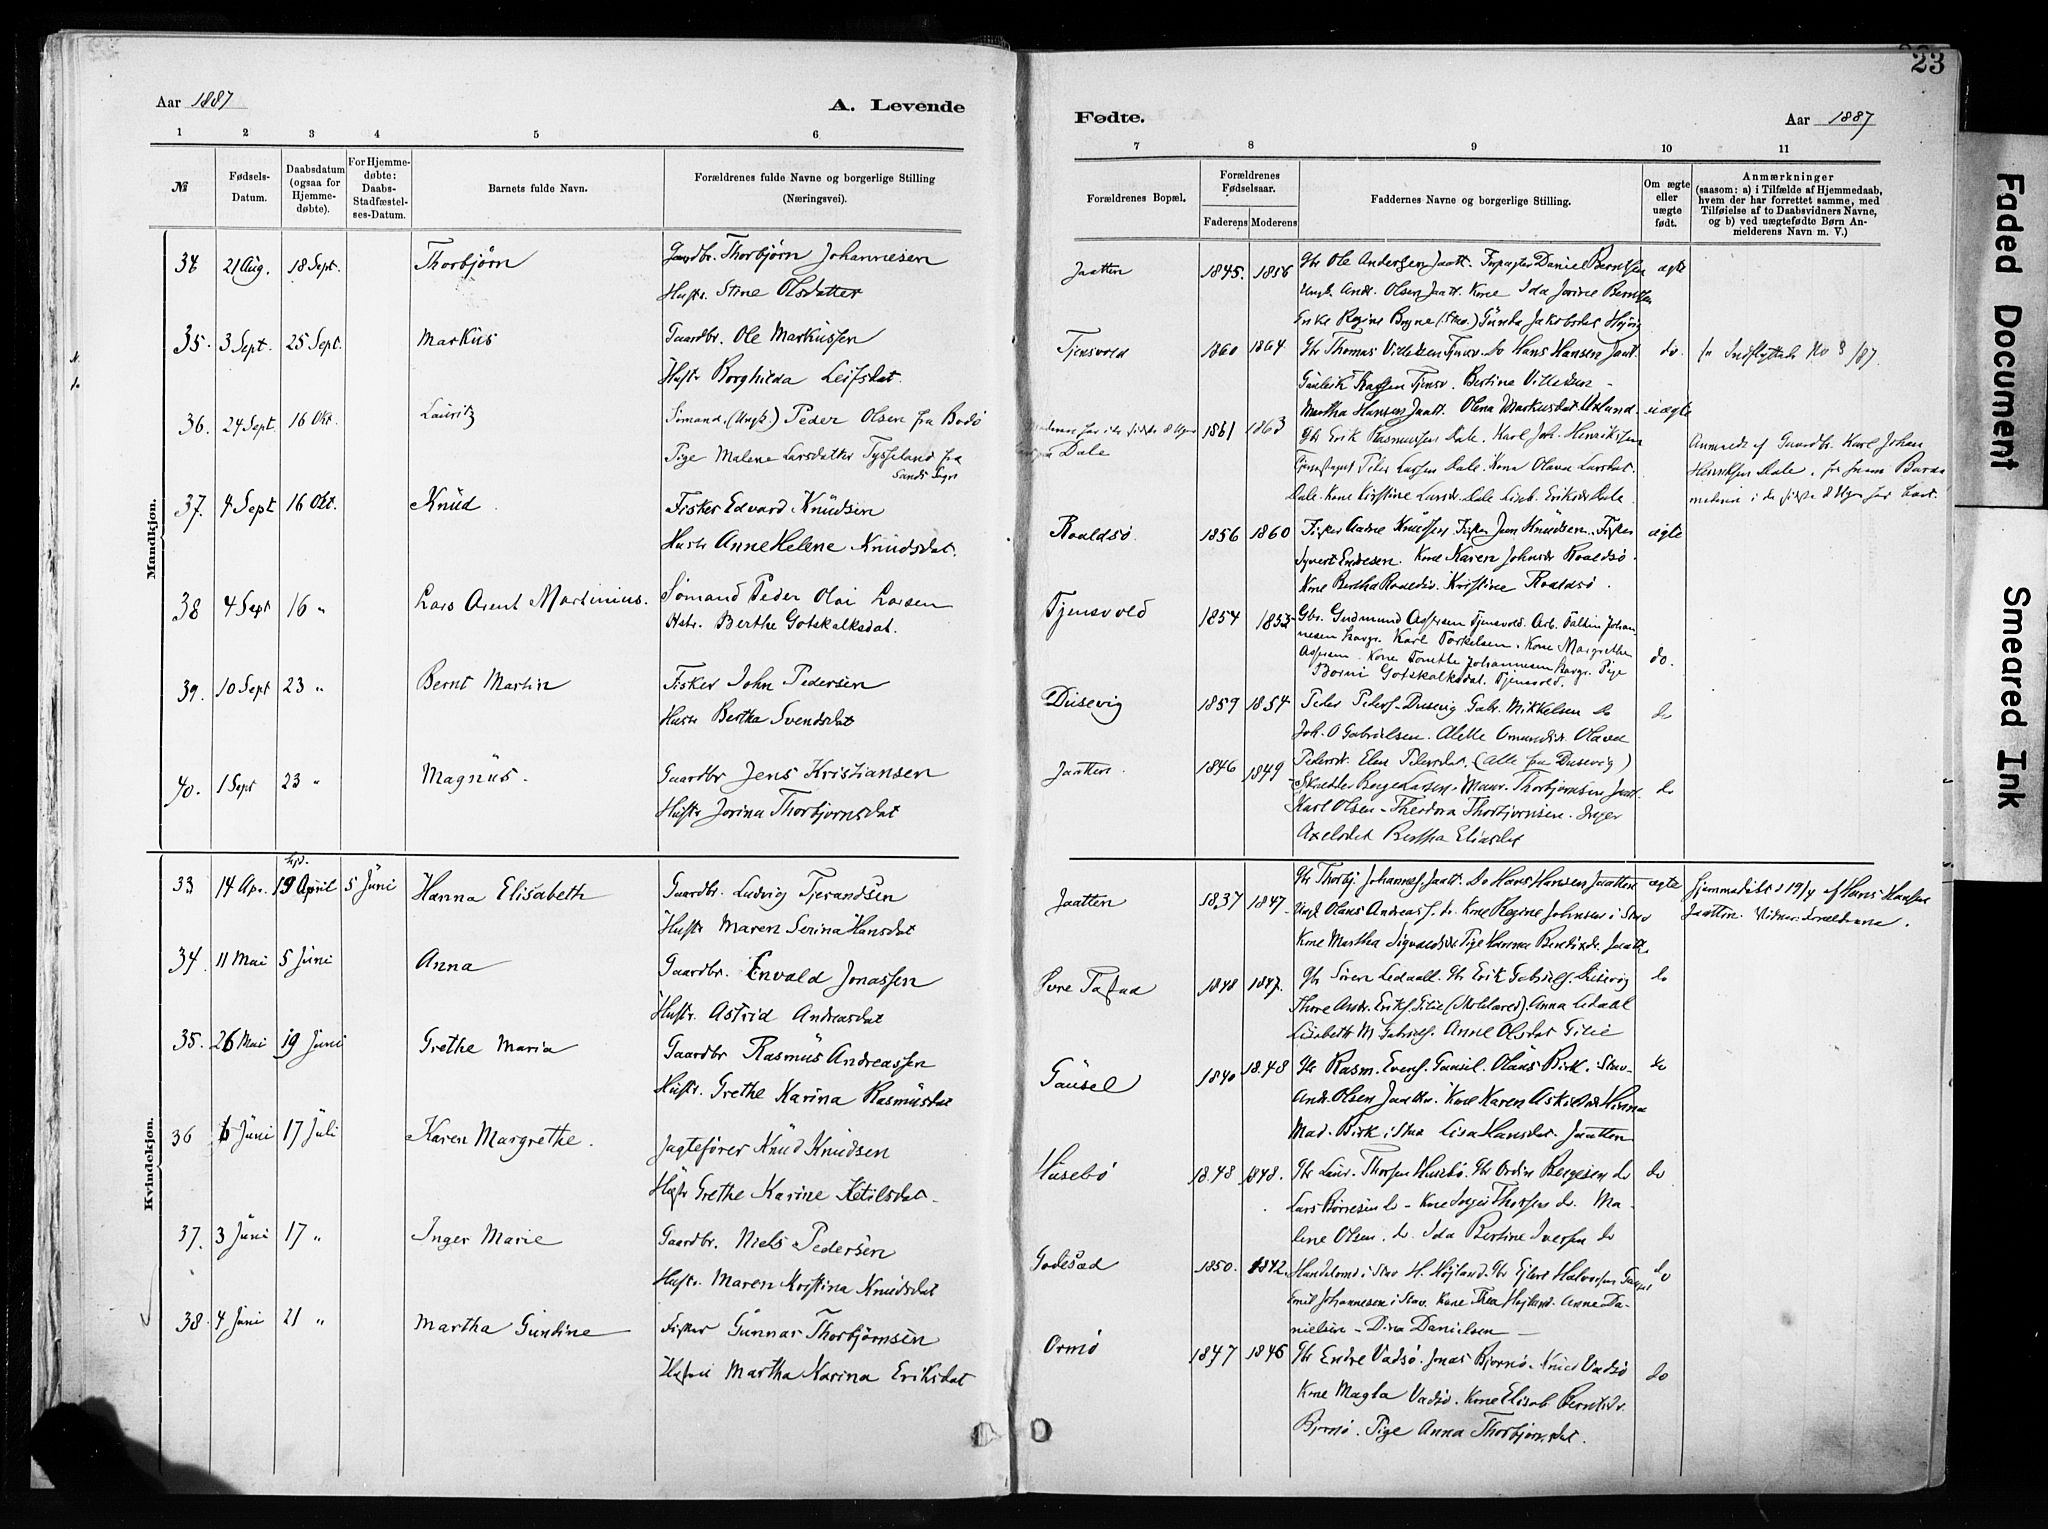 23
Aar 1887
A. Levende
Fødte.
Aar 1887
1 2 3 4 5 6 7 8 9 10 11
№
Fødsels-Datum.
Daabsdatum (ogsaa for Hjemmedøbte).
For Hjemmedøbte: Daabs-Stadfæstelses-Datum.
Barnets fulde Navn.
Forældrenes fulde Navne og borgerlige Stilling (Næringsvei).
Forældrenes Bopæl.
Forældrenes Fødselsaar.
Faderens Moderens
Faddernes Navne og borgerlige Stilling.
Om ægte eller uægte født.
Anmærkninger (saasom: a) i Tilfælde af Hjemmedaab, hvem der har forrettet samme, med Tilføielse af to Daabsvidners Navne, og b) ved uægtefødte Børn Anmelderens Navn m. V.)
Mandkjøn.
34 21 Aug. 18 Sept. Thorbjørn Gaardbr. Thorbjørn Johannesen
Hustr. Stine Olsdatter
Jaatten 1845. 1856 Gbr Ole Andersen Jaatt. Daniel Berntsen ægte
Ungk. Andr. Olsen Jaatt. Kone Ida Jorine Berntsen
Enke Regine Bryne Gunda Jakobsdat
35. 3 Sept. 25 Sept. Markus Gaardbr. Ole Markussen
Hustr Borghilda Leifsdat.
Tjensvold 1860 1864 Gbr Thomas Do Hans Hansen Jaat. do.
Tjensv. Bertine
Martha Hansen Jaatt. Olena Markusdat
36. 24 Sept. 16 Okt. Lauritz Sömand (Ungk) Peder Olsen fra Bodö
Pige Malene Larsdatter Tysseland fra
Sands Sogn
Dale 1861 1863 uægte
Gbr Erik Rasmussen Dale. Karl Joh. Henriksen
Peder Larsen Dale. Kone Olava Larsdat.
Dale. Kone Kirstine Dale Lisb. Eriksdr Dale.
Anmeldt af Gaardbr. Karl Johan
Henriksen Dale.
37. 4 Sept 16 Okt. Knud Fisker Edvard Knudsen
Hustr Anne Helene Knudsdat.
Roaldsø 1856 1860 Fisker Aadne Knudsen Fisker Jon Knudsen. Fisker ægte
Syvert Endresen. Kone Karen Johnsdr Roaldsø
Kone Bertha Roaldsø. Kristine Roaldsø.
38 4 Sept 16 „ Lars Arent Martinius. Sømand Peder Olai Larsen
Hstr. Berthe Gotskalksdat.
Tjensvold 1854 1853 Gbr. Gudmund Aspersen Tjensvold. Arb. Johannesen
Karl Torkelsen. Kone Margrethe
Aspersen. Kone Johannesen Pige
Gotskalksdat. Tjensvold. do.
39. 10 Sept 23 „ Bernt Martin Fisker John Pedersen
Hustr Bertha Svendsdat
Dusevig 1859 1854 Peder Peders. Dusevig Gabr. Mikkelsen do do
Joh. O Gabrielsen. Alette Omundsdr. Olava
Pedersdr. Elen Pedersdat. (Alle fra Dusevig)
40. 1 Sept 23 „ Magnus. Gaardbr Jens Kristiansen
Hustr Jorina Thorbjornsdat
Jaatten. 1846 1849 Børge Larsen. Thorbjørnsen Jaat. do
Karl Olsen – Theodora Thorbjørnsen. Inger
Axelsdat Bertha Eliasdat
Kvindekjøn.
33 14 Apr. hjd. 19 April 5 Juni Hanna Elisabeth Gaardbr. Ludvig Tjerandsen
Hustr Maren Serina Hansdat
Jaatten 1837 1847. Gbr Thorbj. Johannes. Jaatt. Do Hans Hansen Jaatten ægte
Ungk Olaus Andreas. do. Kone Regine Johnsen i Stav
Kone Martha Sigvaldsdr Pige Hanna Berntsdr. Jaatt.
Hjemmedøbt 19/4 af Hans Hansen
Jaatten. Vidner: Forældrene.
34. 11 Mai 5 Juni Anna Gaardbr. Envald Jonassen
Hustr. Astrid Andreasdat
Øvre Tastad 1848 1847. Gbr Søren Ledaall. Gbr Erik Gabriels. Dusevig do
Thore Andr. Anna Ledaal
Lisabeth M Gabriels. Anne Olsdat
35. 26 Mai 19 Juni Grethe Maria Gaardbr Rasmus Andreassen
Hustr. Grethe Karina Rasmusdat
Gausel 1840 1848 Gbr Rasm. Evens. Gausel. Olaus Birk i Stav. do
Andr. Olsen Jaatten. Kone Karen Hinna
Mad. Birk i Stav Lisa Hansdat. Jaatten
36 6 Juni 17 Juli Karen Margrethe. Jagtefører Knud Knudsen
Hustr Grethe Karine Ketilsdat.
Husebø 1848 1848. Gbr Laur. Thorsen Husebø. Gbr Ordin Børgesen do do
Lars Børresen do – Kone Inger Thorsen do. Malene
Olsen. do. Ida Bertine Iversen do
37. 3 Juni 17 „ Inger Marie Gaardbr. Niels Pedersen
Hustr. Maren Kristina Knudsdat
Godesad 1850. 1842. Handelsmd i Stav H. Højland. Gbr Ejlert Halvorsen do
Emil Johannesen i Stav. Kone Thea Højland. Anne Danielsen
– Dina Danielsen –
38. 4 Juni 21 „ Martha Gundine Fisker Gunnar Thorbjørnsen
Hustru Martha Karina Eriksdat
Ormø 1847 1846 Gbr Endre Vadsø. Jonas Bjornø. Knud Vadsø do
Kone Magla Vadsø. Kone Elisab. Berntsdr.
Bjornø. Pige Anna Thorbjørnsdat.
Faded Document
Smeared Ink